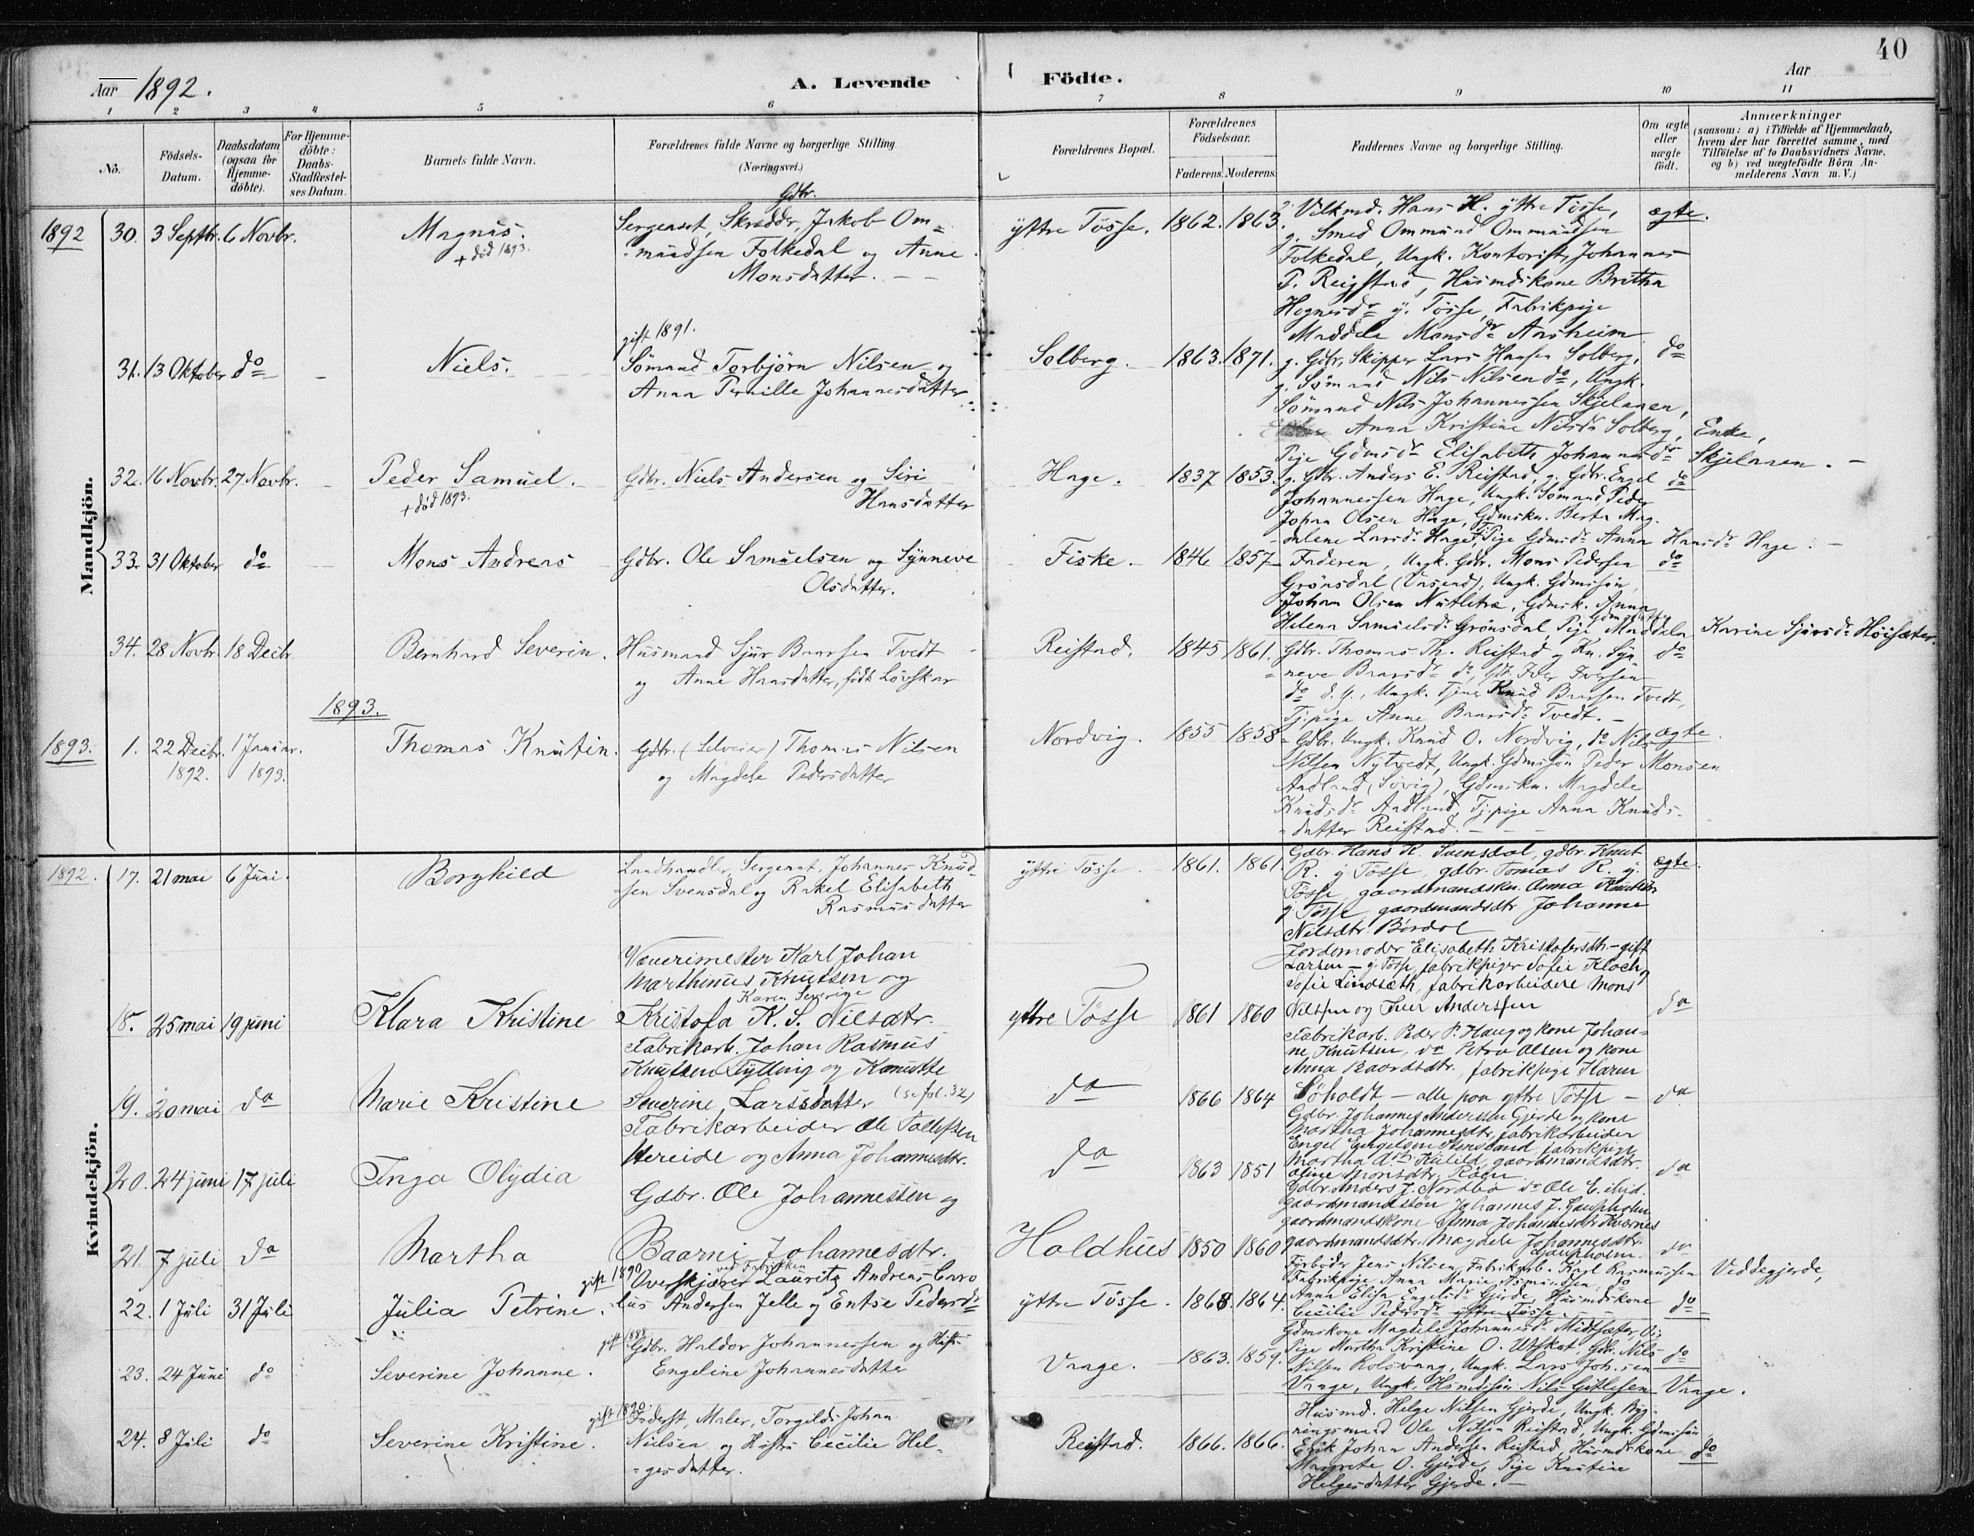 40
Aar 1892.
A. Levende
Födte.
Aar
1 2 3 4 5 6 7 8 9 10 11
No.
Födsels-Datum.
Daabsdatum (ogsaa for Hjemme-döbte).
For Hjemme-döbte: Daabs-Stadfæstel-ses Datum.
Barnets fulde Navn.
Forældrenes fulde Navne og borgerlige Stilling. (Næringsvei.)
Forældrenes Bopæl.
Forældrenes Födselsaar.
Faderens. Moderens.
Faddernes Navne og borgerlige Stilling.
Om ægte eller uægte födt.
Anmærkninger
(sansom: a) i Tilfælde af Hjemmedaab,
hvem der har forrettet samme, med
Tilföielse af to Daabsvidners Navne.
og b) ved uægtefödte Börn An-
melderens Navn m. V.)
Mandkjön.
1892 30. 3 Septbr. 6 Novbr. Magnus. + död 1893.
Gdbr.
Sergeant, Skrædder, Jakob Om=
=mundsen Folkedal og Anne
Monsdatter. — —
yttre Tösse. 1862. 1863. ægte.
Hans K. yttre Tösse,
g. Smed Ommund Ommundsen
Folkedal, Ungk. Kontorist, Johannes
P. Reigstad, Husmdskone Britha
Hognesdr y. Tösse, Fabrikpige
Maddele Monsdr Aarsheim
31. 13 Oktober do — Niels.
gift 1891.
Sömand Torbjörn Nilsen og
Anna Pernille Johannesdatter
Solberg. 1863. 1871. do
g. Gdbr, Skipper Lars Hansen Solberg,
g. Sömand Nils Nilsen do, Ungk.
Sömand Nils Johannessen Skjelanen,
Anna Kristine Nilsdr Solberg, Enke,
Pige Gdmsdr Elisabeth Johannesdr Skjelanen. —
32. 16 Novbr. 27 Novbr. — Peder Samuel. + död 1893.
Gdbr. Niels Andersen og Siri
Hansdatter
Hage. 1837 1853. do
g. Gdbr. Anders E. Reistad, g. Gdbr. Engel
Johannessen Hage, Ungk. Sömand, Peder
Johan Olsen Hage, Gdmskn. Berta Mag-
dalene Larsdr Hage, Pige Gdmsdr Anna Hansdr Hage. —
33. 31 Oktober do — Mons Andreas
Gdbr. Ole Samuelsen og Synneve
Olsdatter.
Fiske. — 1846 1857 do
Faderen, Ungk. Gdbr. Mons Pedersen
Grönsdal, Ungk. Gdmssön
Johan Olsen Nutletræ, Gdmsk. Anna
Helena Samuelsdr Grönsdal, Pige Maddela Karine Sjursdr Höisæter.
34. 28 Novbr. 18 Decbr. Bernhard Severin.
Husmand Sjur Baarsen Tvedt
og Anne Hansdatter, född Lövskar
Reistad. 1845 1861. do
Gdbr. Thomas Th. Reistad og Kn. Syn-
=neve Baarsdr do, Gdbr. Iver Iversen
do d. y., Ungk. Tjener Knud Baarsen Tvedt,
Tj.pige Anne Baarsdr Tvedt. —
1893.
1893. 1. 22 Decbr. 1892. 1 Januar. 1893. Thomas Knutin.
Gdbr. (Selveier) Thomas Nilsen
og Magdele Pedersdatter
Nordvig. 1855 1858 ægte.
Gdbr. Ungk. Knud O. Nordvig, do Nils
Nilsen Nytvedt, Ungk. Gdmssön Peder Monsen
Aadland (Sövig), Gdmskn. Magdele
Knudsdr Aadland, Tj.pige Anna Knuds-
=datter Reistad. — —
Kvindekjön.
1892. 17. 21 mai 6 Juni. Borghild
Landhandler, Sergeant, Johannes Knud-
=sen Svensdal og Rakel Elisabeth
Rasmusdatter
yttre Tösse. 1861. 1861. ægte.
Gdbr. Hans K. Svensdal, gdbr. Knut
R. y Tösse, gdbr. Tomas R. y.
Tösse, gaardmandskn. Anna Knutsdtr
y Tösse, gaardmandsdtr. Johanne
Nilsdtr Bördal
18. 25 mai 19 juni Klara Kristine
Væverimester Karl Johan
Marthinus Knutsen og
Karen Severine
Kristofa K. S. Nilsdtr.
yttre Tösse 1861 1860 da
Jordemoder Elisabeth Kristofersdtr. — gift
Larsen — y. Tösse, fabrikpiger Sofie Kloch,
Sofie Lindsæth, fabrikarbeidere Mons
Nilsen og Iver Anderssen
19. 20 mai da Marie Kristine
Fabrikarb. Johan Rasmus
Knutsen Tytting og
Severine Larsdatter (se fol. 32)
da 1866 1864 da
Fabrikarb. Peder P. Haug og kone Johan-
ne Knutsen, da Petra Olsen og kone
Anna Baardsdtr., fabrikpige Karen
Söholdt — alle paa yttre Tösse —
20. 24 juni 17 juli Inga Olydia
Fabrikarbeider Ole Tollefssen
Hereide og Anna Johannesdtr.
da 1863 1851 da
Gdbr. Johannes Anderssen Gjerde og kone
Martha Johannesdtr, fabrikarbeider
Engel Engelsen, fabrikpige
Martha, gaardmandsdtr.
Oline Monsdtr.
21. 7 juli da Martha
Gdbr. Ole Johannessen og
Baarni Johannesdtr.
Holdhus 1850 1860 da
Gdbr. Anders J. Nordbö, da Ole E. ibid.
gaardmandssön Johannes J. Gaupholm
gaardmandskone Anna Johannesdtr.
gaardmandsdtr. Magdele Johannesdtr. Gaupholm.
22. 1 Juli 31 Juli Julia Petrine.
gift 1890
ved Fabrikken
Overskjærer Lauritz Andreas Corne
lius Andersen Jelle og Entse Pedersdr
yttre Tösse. 1868. 1864. do
Jens Nilsen, Fabrikarb. Karl Rasmussen Veddegjerde,
Fabrikpige Anna Marie Asmundsen do
Anna Elisa Engelsdr Gjerde, Husmdskone
Cecilie Pedersdr yttre Tösse.
23. 24 Juni do Severine Johanne.
gift 1888
Gdbr. Haldor Johannessen og Hustr.
Engeline Johannesdatter
Vaage. 1863. 1859. do
Gdmskone Magdele Johannesdr Midtsæter,
Pige Martha Kristine O. Utskot, Gdbr. Nils
Nilsen Rolsvaag, Ungk. Lars Joh.sen
Vaage, Ungk. Husmdssön Nils Gitlesen Vaage.
24. 8 Juli do Severine Kristine.
gift 1890.
Inderst, Maler, Torgils Johan
Nielsen og Hustr. Cecilie Hel-
=gesdatter.
Reistad. 1866. 1866. do
Husmd. Helge Nilsen Gjerde, Ungk. Byg-
ningsmand Ole Nilsen Reistad, Ungk. Gdmssön
Erik Johan Andersen Reistad, Husmdskone
Margrete O. Gjerde, Pige Kristine
Helgesdatter Gjerde. —